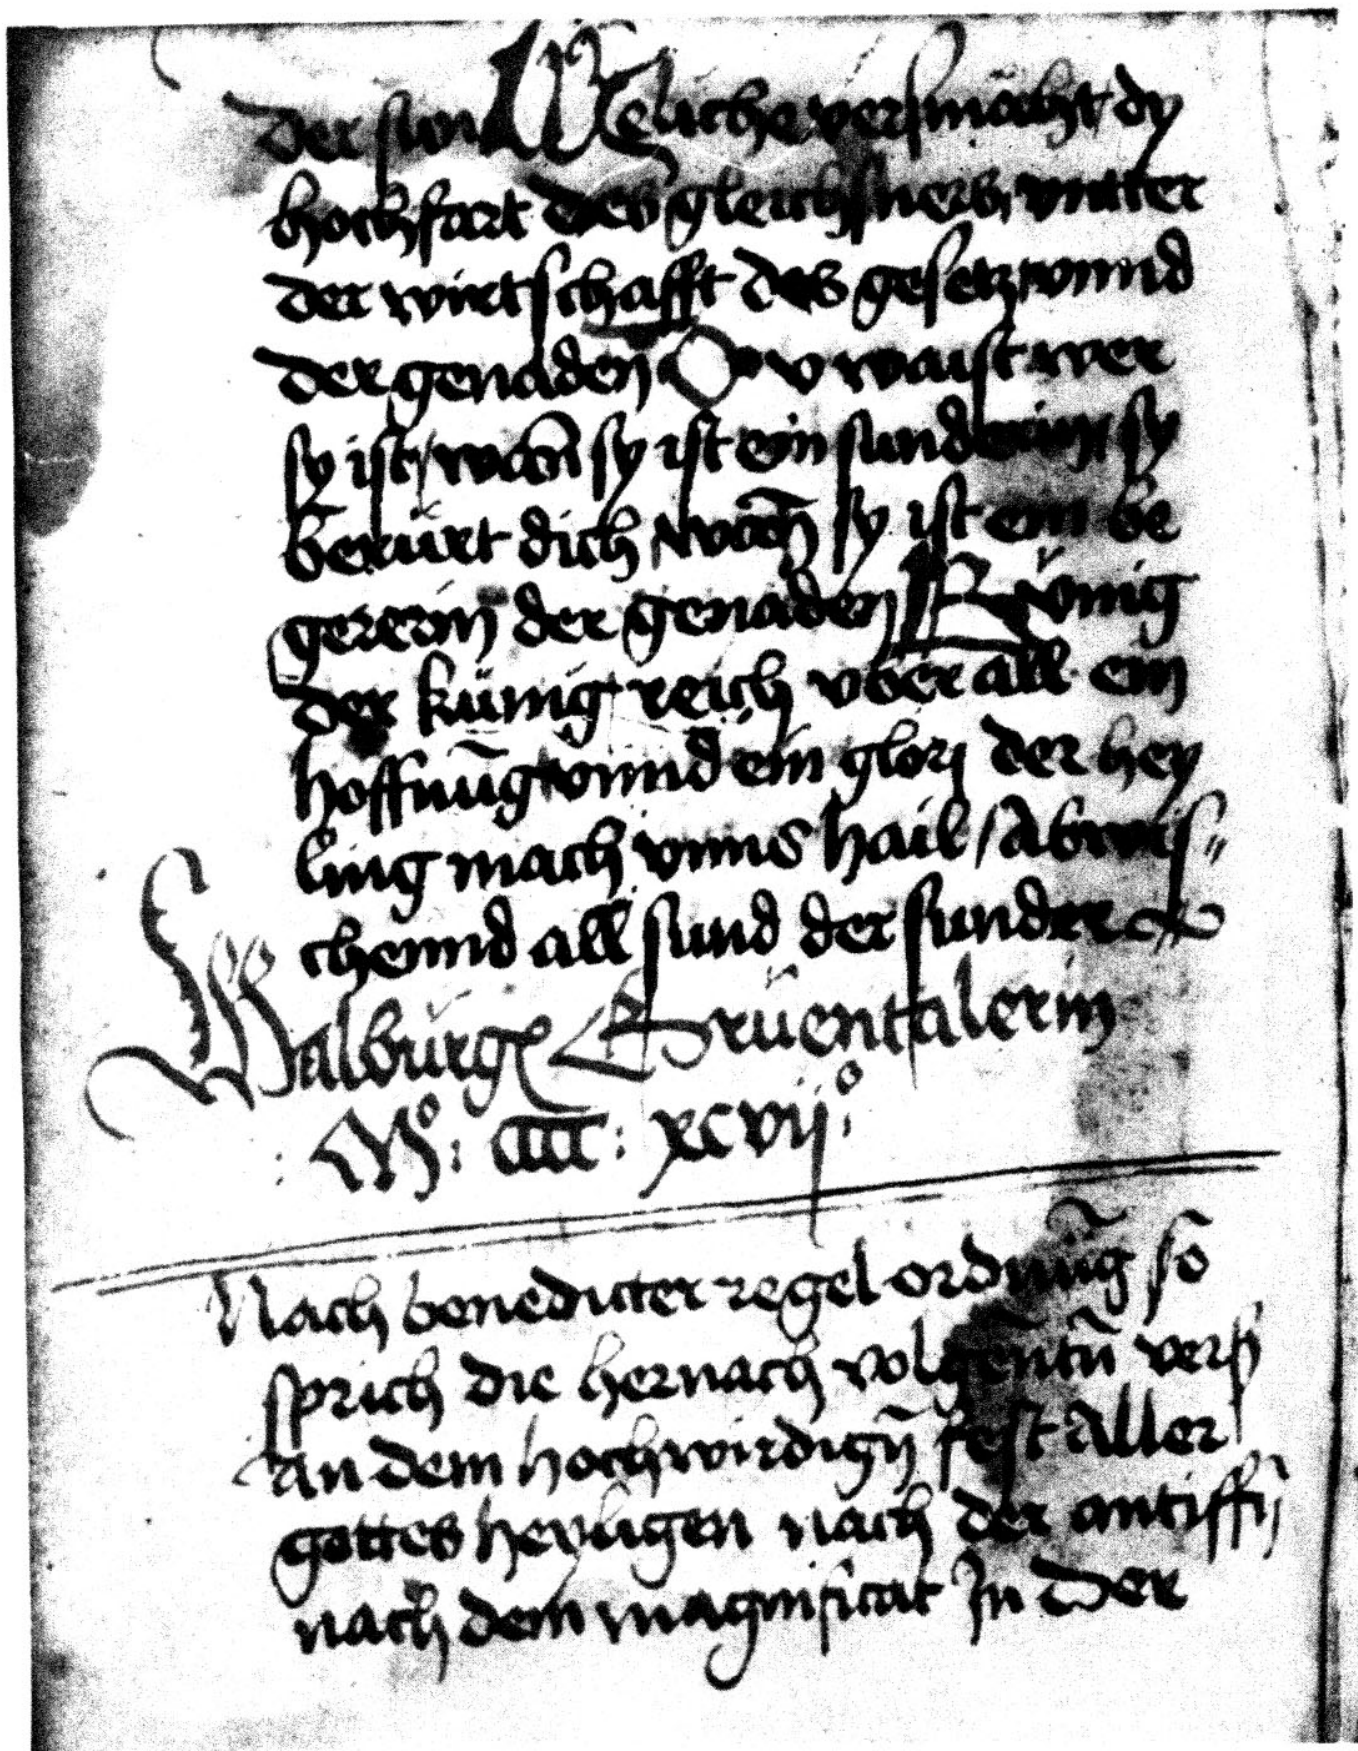 der sund Weliche versmächt dy
hochfart des gleichsners, vntter
der wirtschafft des gesetz vnnd
der genaden Dv waist wer
sy ist / wan̄ sy ist ein sunderin, sy
berürt dich, wan̄ sy ist ein be
gererin der genaden Kűnig
der künig reich vber all ein
hoffnūg vnnd ein glorj der hey
ling mach vnns hail / Abwis„
chennd all sund der sunder
Walburg Grüentalerin
: Mº: cccc : xcvijº:
Nach benedicter regel ordnūg so
sprich die hernach volgēntn̄ verß
an dem hochwirdign̄ fest aller
gottes heyligen nach der antiffn̄
nach dem magnificat In der